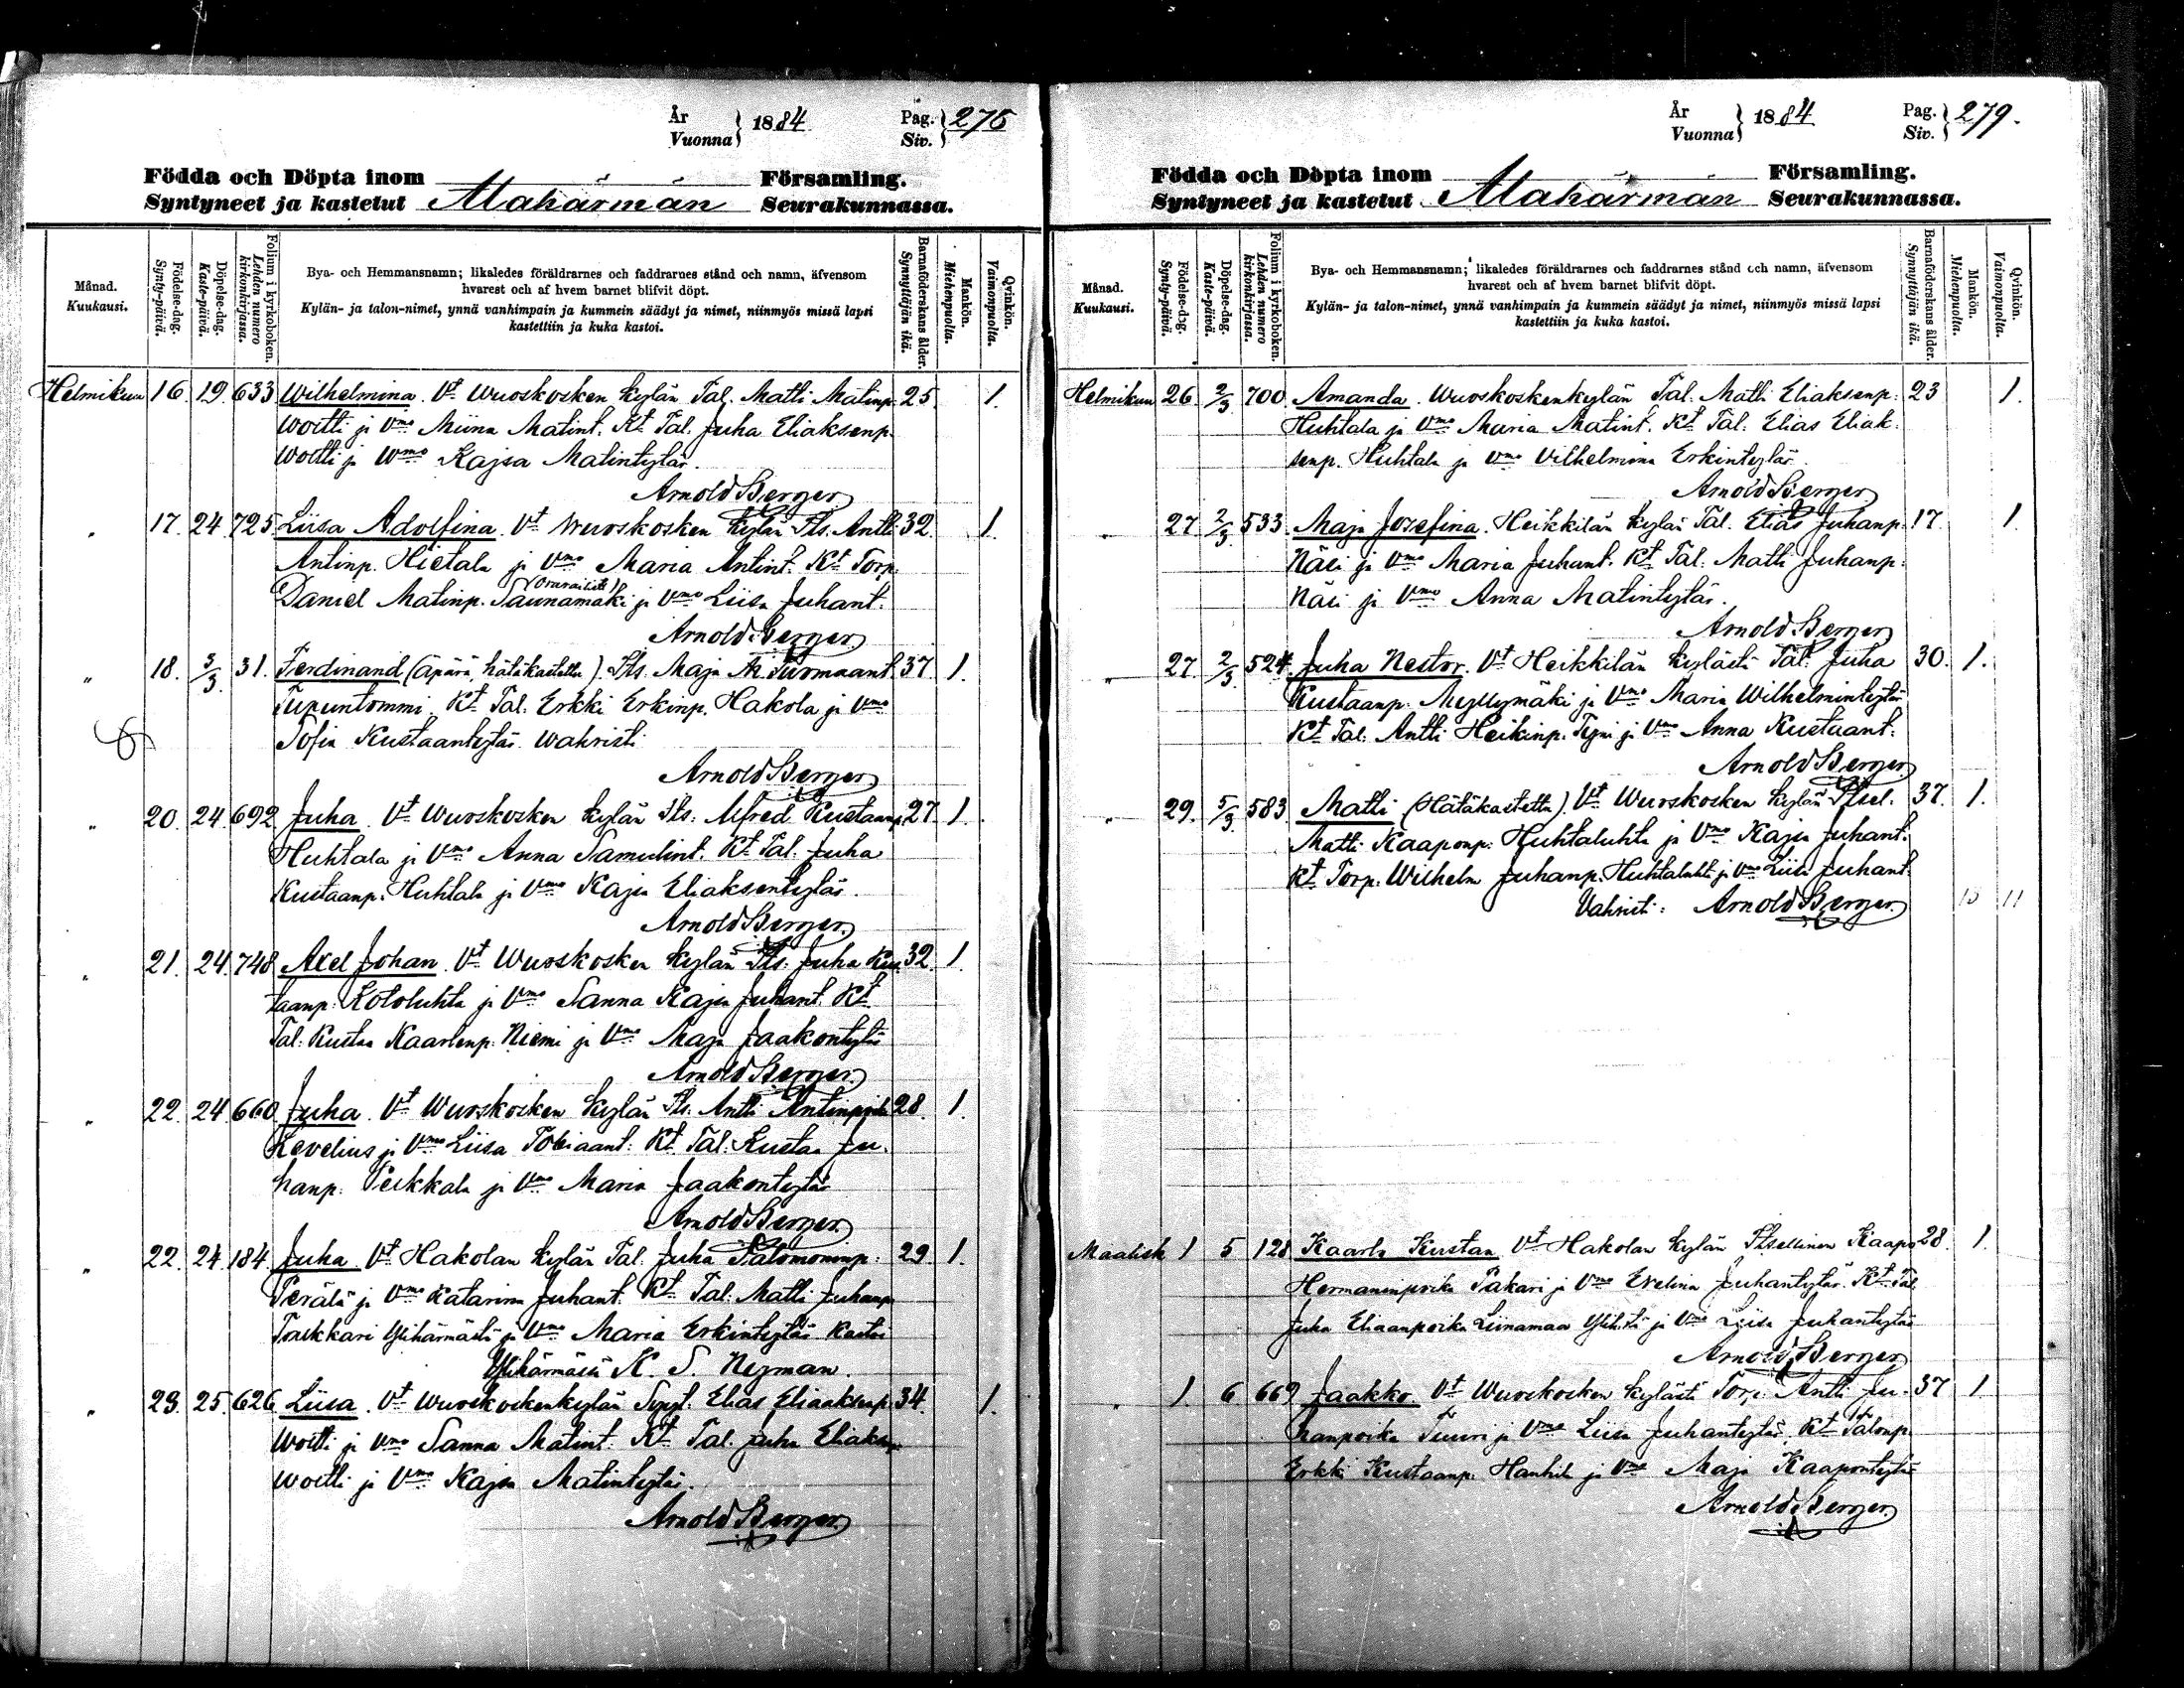 År
Vuonna } 1884
Pag.
Siv. } 275
Födda och Döpta inom Församling.
Syntyneet ja kastetut Alahärmän Seurakunnassa.
Månad.
Kuukausi.
Födelse-dag.
Synty-päivä.
Döpelse-dag.
Kaste-päivä.
Folium i kyrkoboken.
Lehden numero
kirkonkirjassa.
Bya- och Hemmansnamn; likaledes föräldrarnes och faddrarnes stånd och namn, äfvensom
hvarest och af hvem barnet blifvit döpt.
Kylän- ja talon-nimet, ynnä vanhimpain ja kummein säädyt ja nimet, niinmyös missä lapsi
kastettiin ja kuka kastoi.
Barnaföderskans ålder.
Synnyttäjän ikä.
Mankön.
Miehenpuolta.
Qvinkön.
Vaimonpuolta.
Helmikuun 16. 19. 633 Wilhelmina. Vt. Wuoskosken kylän Tal. Matti Matinp. 25 1.
Woitti ja Vmo Miina Matint. Kt. Tal. Juha Eliaksenp.
Woitti ja Wmo Kajsa Matintytär.
Arnold Berger
" 17. 24 725 Liisa Adolfina. Vt. Wuoskosken kylän Its. Antti 32. 1.
Antinp. Hietala ja Vmo Maria Antint. Kt. Torp.
Daniel Matinp. Saunamäki ja Vmo Liisa Juhant.
Arnold Berger
" 18. 3/3 31. Ferdinand (äpärä, hätäkastettu). Its. Maja 37 1.
Kt. Tal. Erkki Erkinp. Hakola ja Vmo
Sofia Kustaantytär. Wahvisti
Arnold Berger
" 20. 24. 692 Juha. Vt. Wuoskosken kylän Its. Alfred Kustaanp. 27. 1.
Huhtala ja Vmo Anna Samulint. Kt. Tal. Juha
Kustaanp. Huhtala ja Vmo Kajsa Eliaksentytär.
Arnold Berger
" 21. 24. 748 Axel Johan. Vt. Wuoskosken kylän Its. Juha Kus 32. 1.
taanp. Kotoluhta ja Vmo Sanna Kajsa Juhant. Kt.
Tal. Kustaa Kaarlenp. Niemi ja Vmo Maja Jaakontytär
Arnold Berger
" 22. 24. 660 Juha. Vt. Wuoskosken kylän Its. Antti Antinpoika 28. 1.
Levelius ja Vmo Liisa Tobiaant. Kt. Tal. Kustaa Ju-
hanp. Pekkala ja Vmo Maria Jaakontytär
Arnold Berger
" 22. 24. 184. Juha. Vt. Hakolan kylän Tal. Juha Salomoninp. 29. 1.
Perälä ja Vmo Katarina Juhant. Kt. Tal. Matti Juhanp.
Ylihärmästä ja Vmo Maria Erkintytär Kastoi
Ylihärmässä K. S. Nyman.
" 23. 25. 626 Liisa. Vt. Wuoskosken kylän Elias Eliaaksenp. 34. 1.
Woitti ja Vmo Sanna Matint. Kt. Tal. Juha Eliaks
Woitti ja Vmo Kajsa Matintytär.
Arnold Berger
År
Vuonna } 1884
Pag.
Siv. } 279.
Födda och Döpta inom Församling.
Syntyneet ja kastetut Alahärmän Seurakunnassa.
Månad.
Kuukausi.
Födelse-dag.
Synty-päivä.
Döpelse-dag.
Kaste-päivä.
Folium i kyrkoboken.
Lehden numero
kirkonkirjassa.
Bya- och Hemmansnamn; likaledes föräldrarnes och faddrarnes stånd och namn, äfvensom
hvarest och af hvem barnet blifvit döpt.
Kylän- ja talon-nimet, ynnä vanhimpain ja kummein säädyt ja nimet, niinmyös missä lapsi
kastettiin ja kuka kastoi.
Barnaföderskans ålder.
Synnyttäjän ikä.
Mankön.
Miehenpuolta.
Qvinkön.
Vaimonpuolta.
Helmikuun 26 2/3 700 Amanda. Wuoskoskenkylän Tal. Matti Eliaksenp. 23 1.
Huhtala ja Vmo Maria Matint. Kt. Tal. Elias Eliak-
senp. Huhtala ja Vmo Vilhelmina Erkintytär.
Arnold Berger
" 27 2/3 533. Maja Josefina. Heikkilän kylän Tal. Elias Juhanp. 17. 1.
Näsi ja Vmo Maria Juhant. Kt. Tal. Matti Juhanp.
Näsi ja Vmo Anna Matintytär.
Arnold Berger
" 27. 2/3 524. Juha Nestor. Vt. Heikkilän kylästä Tal. Juha 30. 1.
Kustaanp. Myllymäki ja Vmo Maria Wilhelmintytär
Kt. Tal. Antti Heikinp. Tyni ja Vmo Anna Kustaant.
Arnold Berger
" 29. 5/3 583. Matti (Hätäkastettu). Vt. Wuoskosken kylän Itsel. 37. 1.
Matti Kaaponp. Huhtaluhta ja Vmo Kajsa Juhant.
Kt. Torp. Wilhelm Juhanp. Huhtaluhti ja Vmo Liisa Juhant.
Vahvisti: Arnold Berger 10 11
Maalisk 1 5 128 Kaarlo Kustaa Vt. Hakolan kylän Itsellinen Kaapo 28. 1.
Hermanninpoika Pakari ja Vmo Evelina Juhantytär. Kt. Tal.
Juha Eliaanpoika Liinamaa ja Vmo Liisa Juhantytär
Arnold Berger
" 1. 6 669 Jaakko. Vt. Wuoskosken kylästä Torp. Antti Ju- 37 1
hanpoika Tuuri ja Vmo Liisa Juhantytär. Kt. Talonp.
Erkki Kustaanp. Hanhila ja Vmo Maja Kaapontytär
Arnold Berger